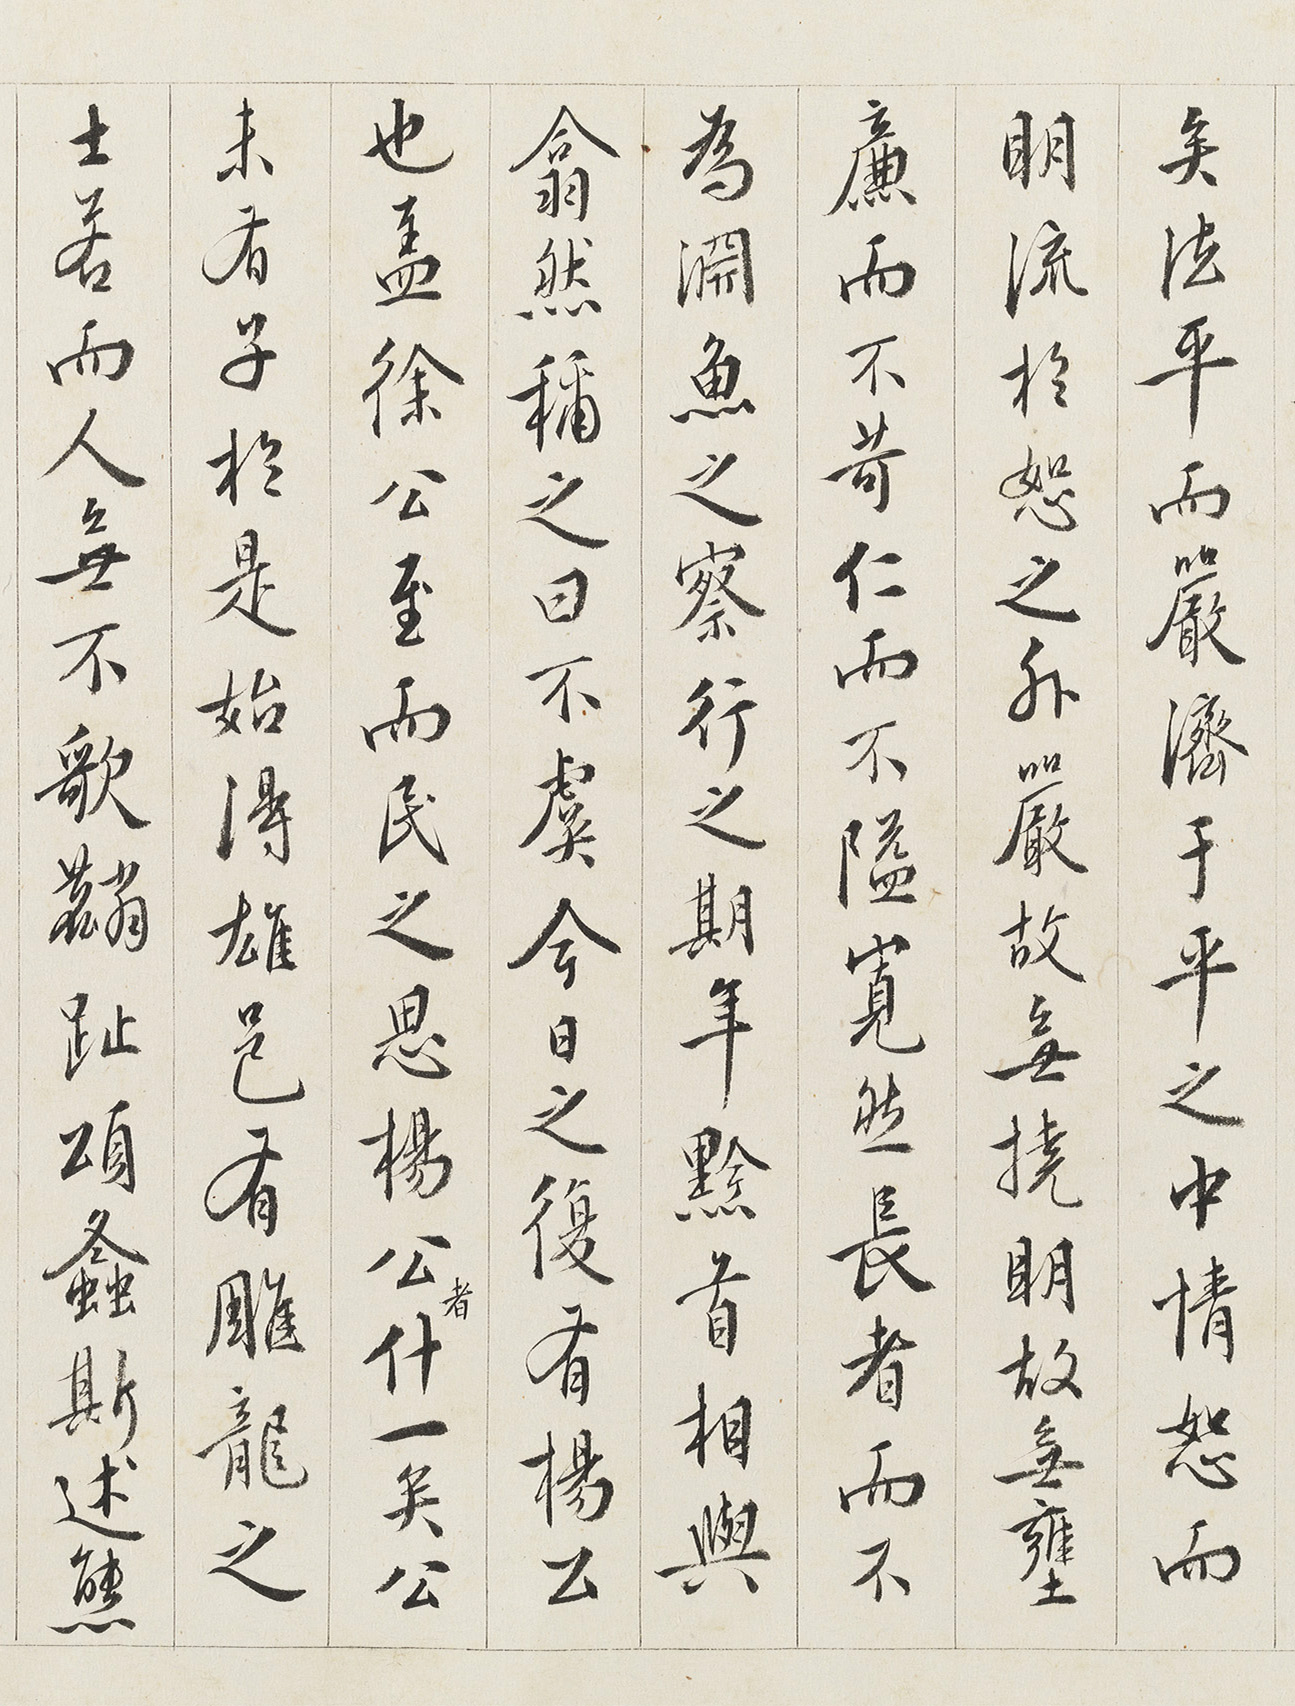 矣法平而嚴濟于平之中情恕而
明流於恕之外嚴故無撓明故無壅
廉而不苛仁而不隘寬然長者而不
為淵魚之察行之期年黔首相與
翕然稱之曰不虞今日之復有楊公
也蓋徐公至而民之思楊公者什一矣公
未有子於是始得雄邑有雕龍之
士若而人無不歌麟趾頌螽斯述熊